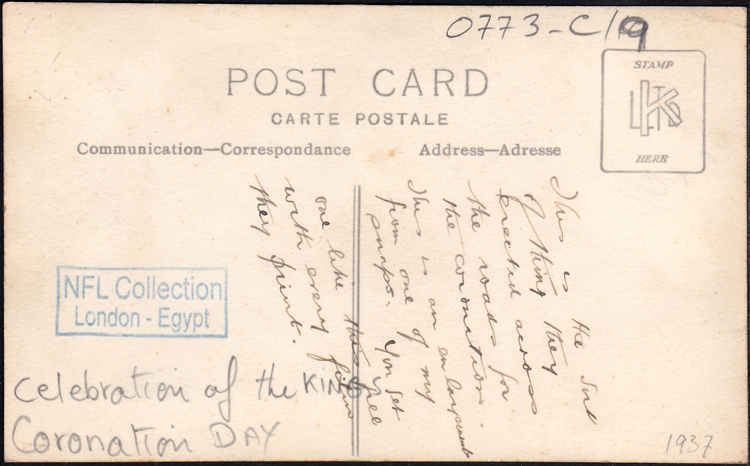 0773-C/19
POST CARD
CARTE POSTALE
Communication—Correspondance
Address—Adresse
STAMP
K LTD
HERE
This is the sort
of thing they
erected across
the roads for
the coronation.
This is an enlargement
from one of my
snaps. You get
one like this free
with every film
they print.
NFL Collection
London - Egypt
Celebration of the KING'S
Coronation DAY
1937